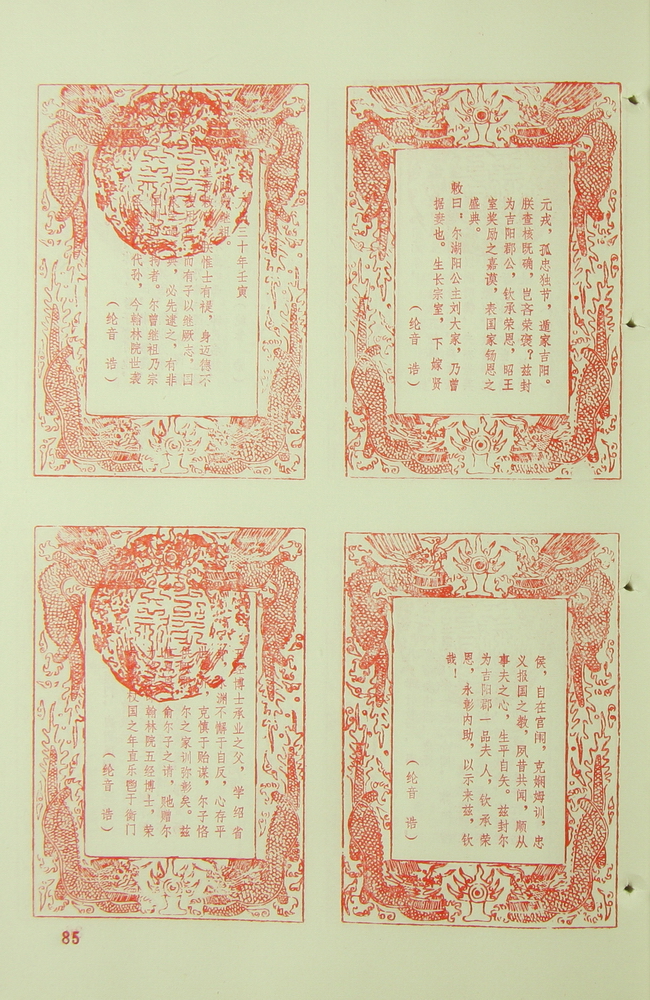 元戎，孤忠独节，遁家吉阳。
朕查核既确，岂吝荣褒？兹封
为吉阳郡公，钦承荣恩，昭王
室奖励之嘉谟，表国家锡恩之
盛典。
敕曰：尔湖阳公主刘大家，乃曾
据表也。生长宗室，下嫁贤
（纶音 诰）
侯，自在宫闱，克娴姆训，忠
义报国之教，夙昔共闻，顺从
事夫之心，生平自矢。兹封尔
为吉阳郡一品夫人，钦承荣
恩，永彰内助，以示来兹，钦
哉！
（纶音 诰）
三十年壬寅
朕惟士有禔，身迈德不
而有子以继厥志，国
典，必先逮之，有非
者。尔曾继祖乃宗
代孙，今翰林院世袭
（纶音 诰）
博士承业之父，学绍省
渊不懈于自反，心存平
，克慎于贻谋，尔子恪
尔之家训弥彰矣。兹
俞尔子之请，貤赠尔
翰林院五经博士，荣
国之年直乐豳于衡门
（纶音 诰）
85